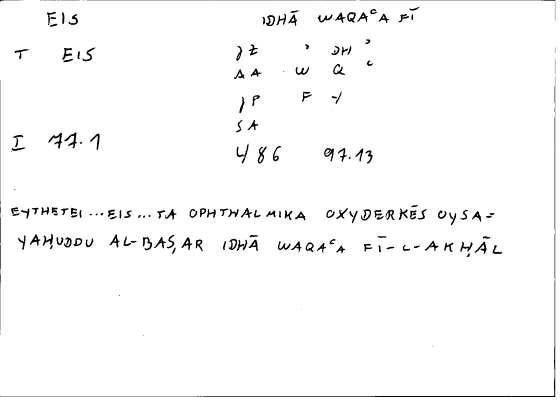 EIS IDHĀ WAQAᶜA FĪ
T EIS
ʾ DHʾ
AA W Q ᶜ
F Y
SA
I 77.1 4/86 97.13
EYTHETEI...EIS...TA OPHTHALMIKA OXYDERKĒS OYSA=
YAḤUDDU AL-BAṢAR IDHĀ WAQAᶜA FĪ-L-AKḤĀL